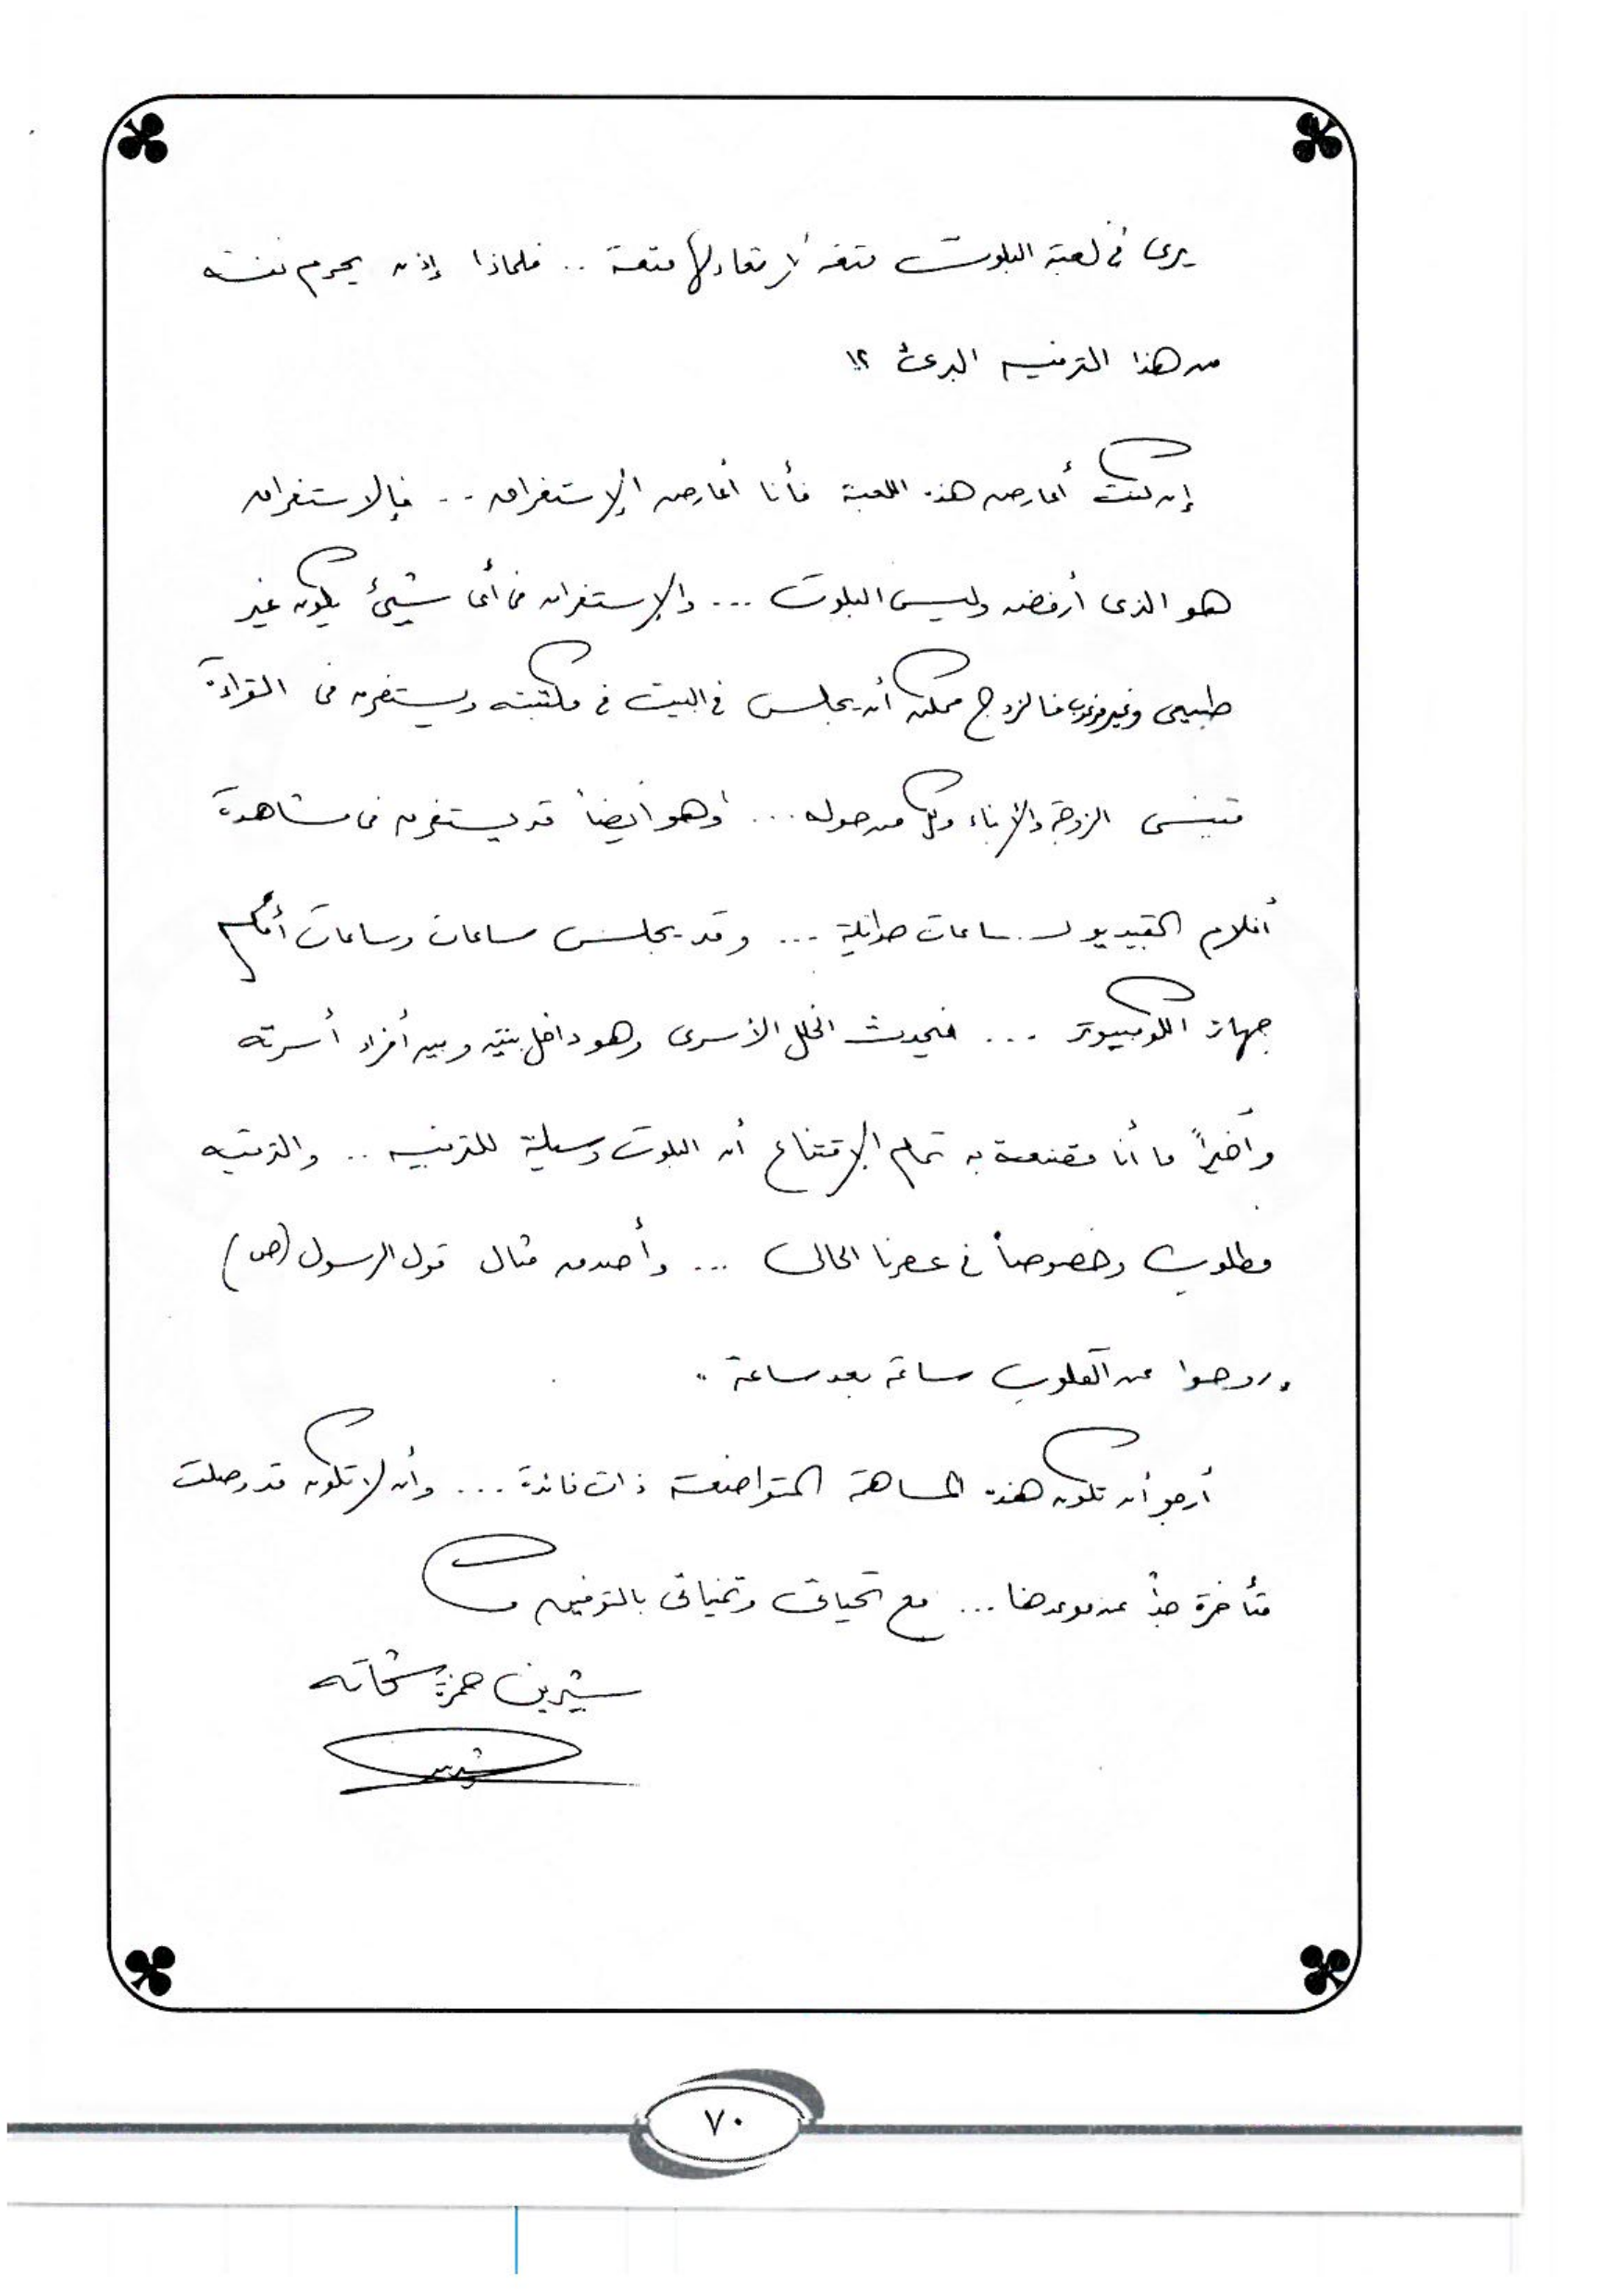 يرى في لعبة البلوت متعة لا تعادلها متعة .. فلماذا إذن يحرم نفسه
من هذا الترفيه البرئ ؟!
إن كنت أعارض هذه اللعبة فأنا أعارض الإستغراق .. فالاستغراق
هو الذى أرفضه وليس البلوت ... والإستغراق فى أى شيئ يكون غير
طبيعى وغير مرغوب فالزوج ممكن أن يجلس في البيت في مكتبته ويستغرق فى القراءة
فينسى الزوجة والأبناء وكل من حوله ... وهو أيضاً قد يستغرق فى مشاهدة
أفلام الڤيديو لـ ساعات طويلة ... وقد يجلس ساعات وساعات أمام
جهاز الكومبيوتر ... فيحدث الخلل الأسرى وهو داخل بيته وبين أفراد أسرته
وأخيراً ما أنا مقتنعة به تمام الإقتناع أن البلوت وسيلة للترفيه .. والترفيه
مطلوب وخصوصاً في عصرنا الحالى ... وأصدق مثال قول الرسول (ص)
"روحوا عن القلوب ساعة بعد ساعة "
أرجو أن تكون هذه المساهمة المتواضعة ذات فائدة ... وأن لا تكون قد وصلت
متأخرة جداً عن موعدها ... مع تحياتى وتمنياتى بالتوفيق
شيرين حمزة شحاته
شيرين
٧٠